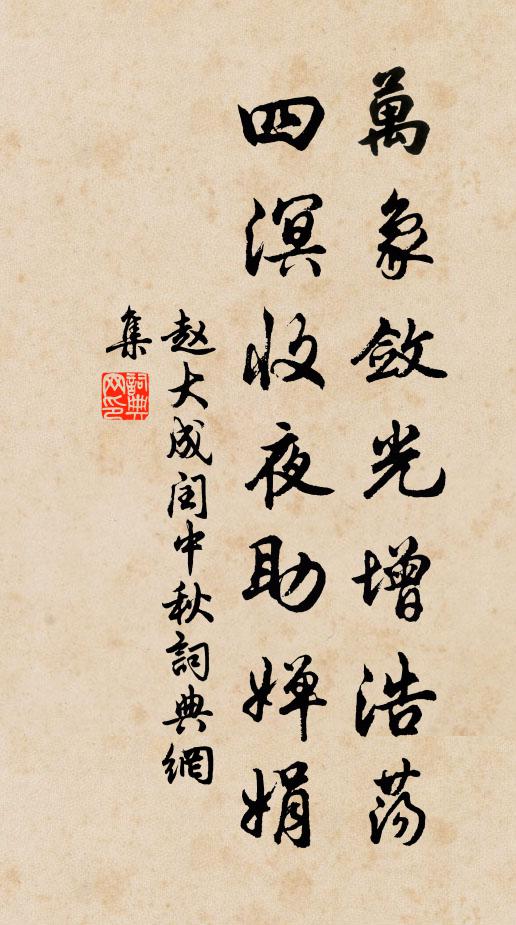 萬象斂光增浩荡
四溟收夜助婵娟
赵大成闰中秋詞典網
集
詞典
网印